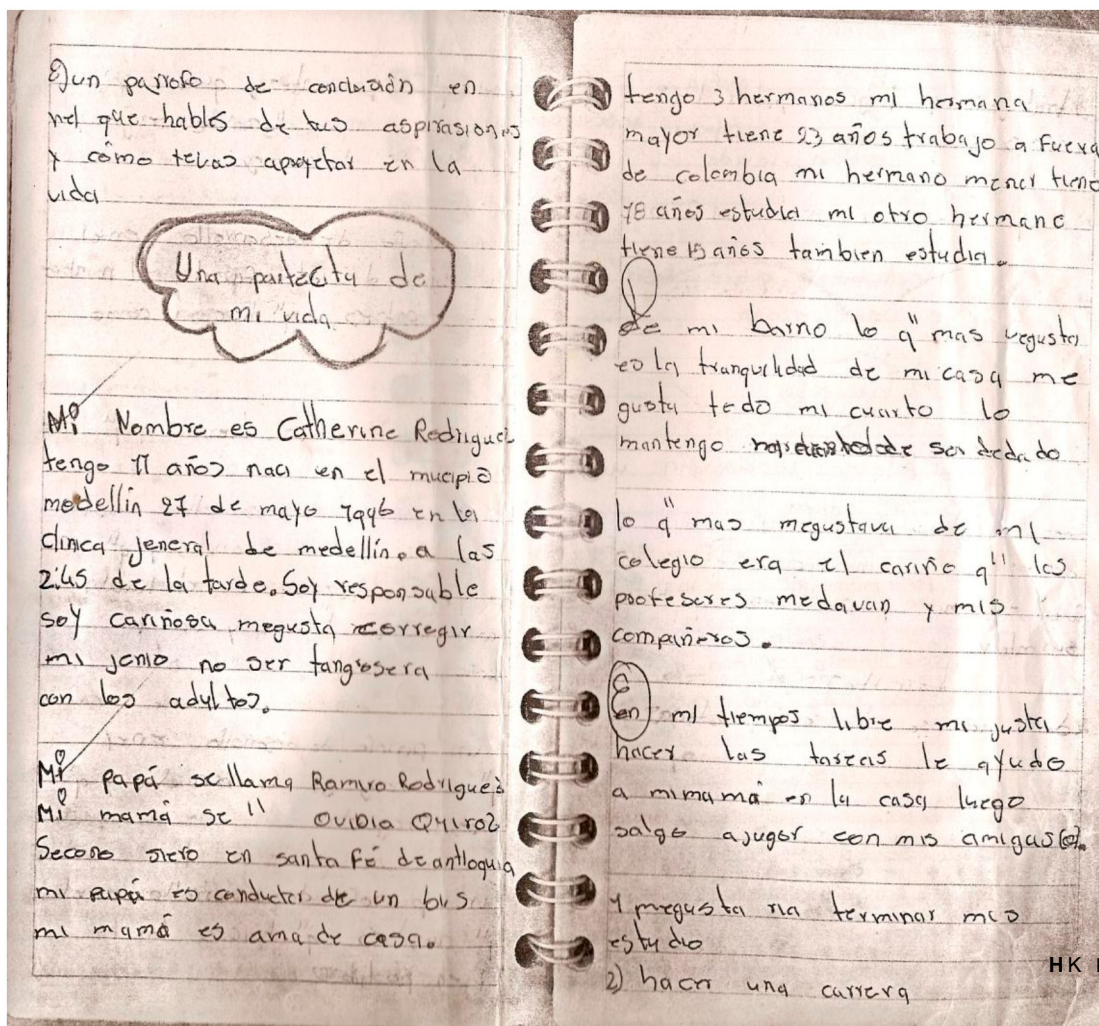 un parrofo de conclusión en
nel que hables de tus aspirasiones
y cómo tevas aproyetar en la
vida
Una partecita de
mi vida
Mi Nombre es Catherine Rodriguez
tengo 11 años naci en el mucipio
medellin 27 de mayo 1996 en la
clinica jeneral de medellin. a las
2:45 de la tarde. Soy responsable
soy cariñosa megusta corregir
mi jenio no ser tangrosera
con los adultos.
Mi papá se llama Ramiro Rodriguez
Mi mamá se " OVIDIA QUIROZ
Secono siero en santa Fé de antioquia
mi papá es conductor de un bus
mi mamá es ama de casa.
tengo 3 hermanos mi hermana
mayor tiene 23 años trabajo a fuera
de colombia mi hermano menor tiene
18 años estudia mi otro hermano
tiene 15 años tambien estudia.
de mi barrio lo q" mas megusta
es la tranquilidad de mi casa me
gusta todo mi cuarto lo
mantengo
lo q" mas megustava de mi
colegio era el cariño q" los
profesores medavan y mis
compañeros.
En mi tiempos libre mi justa
hacer las tareas le ayudo
a mimamá en la casa luego
salgo ajugar con mis amigas(o).
terminar mis
estudio
2) hacer una carrera
HK